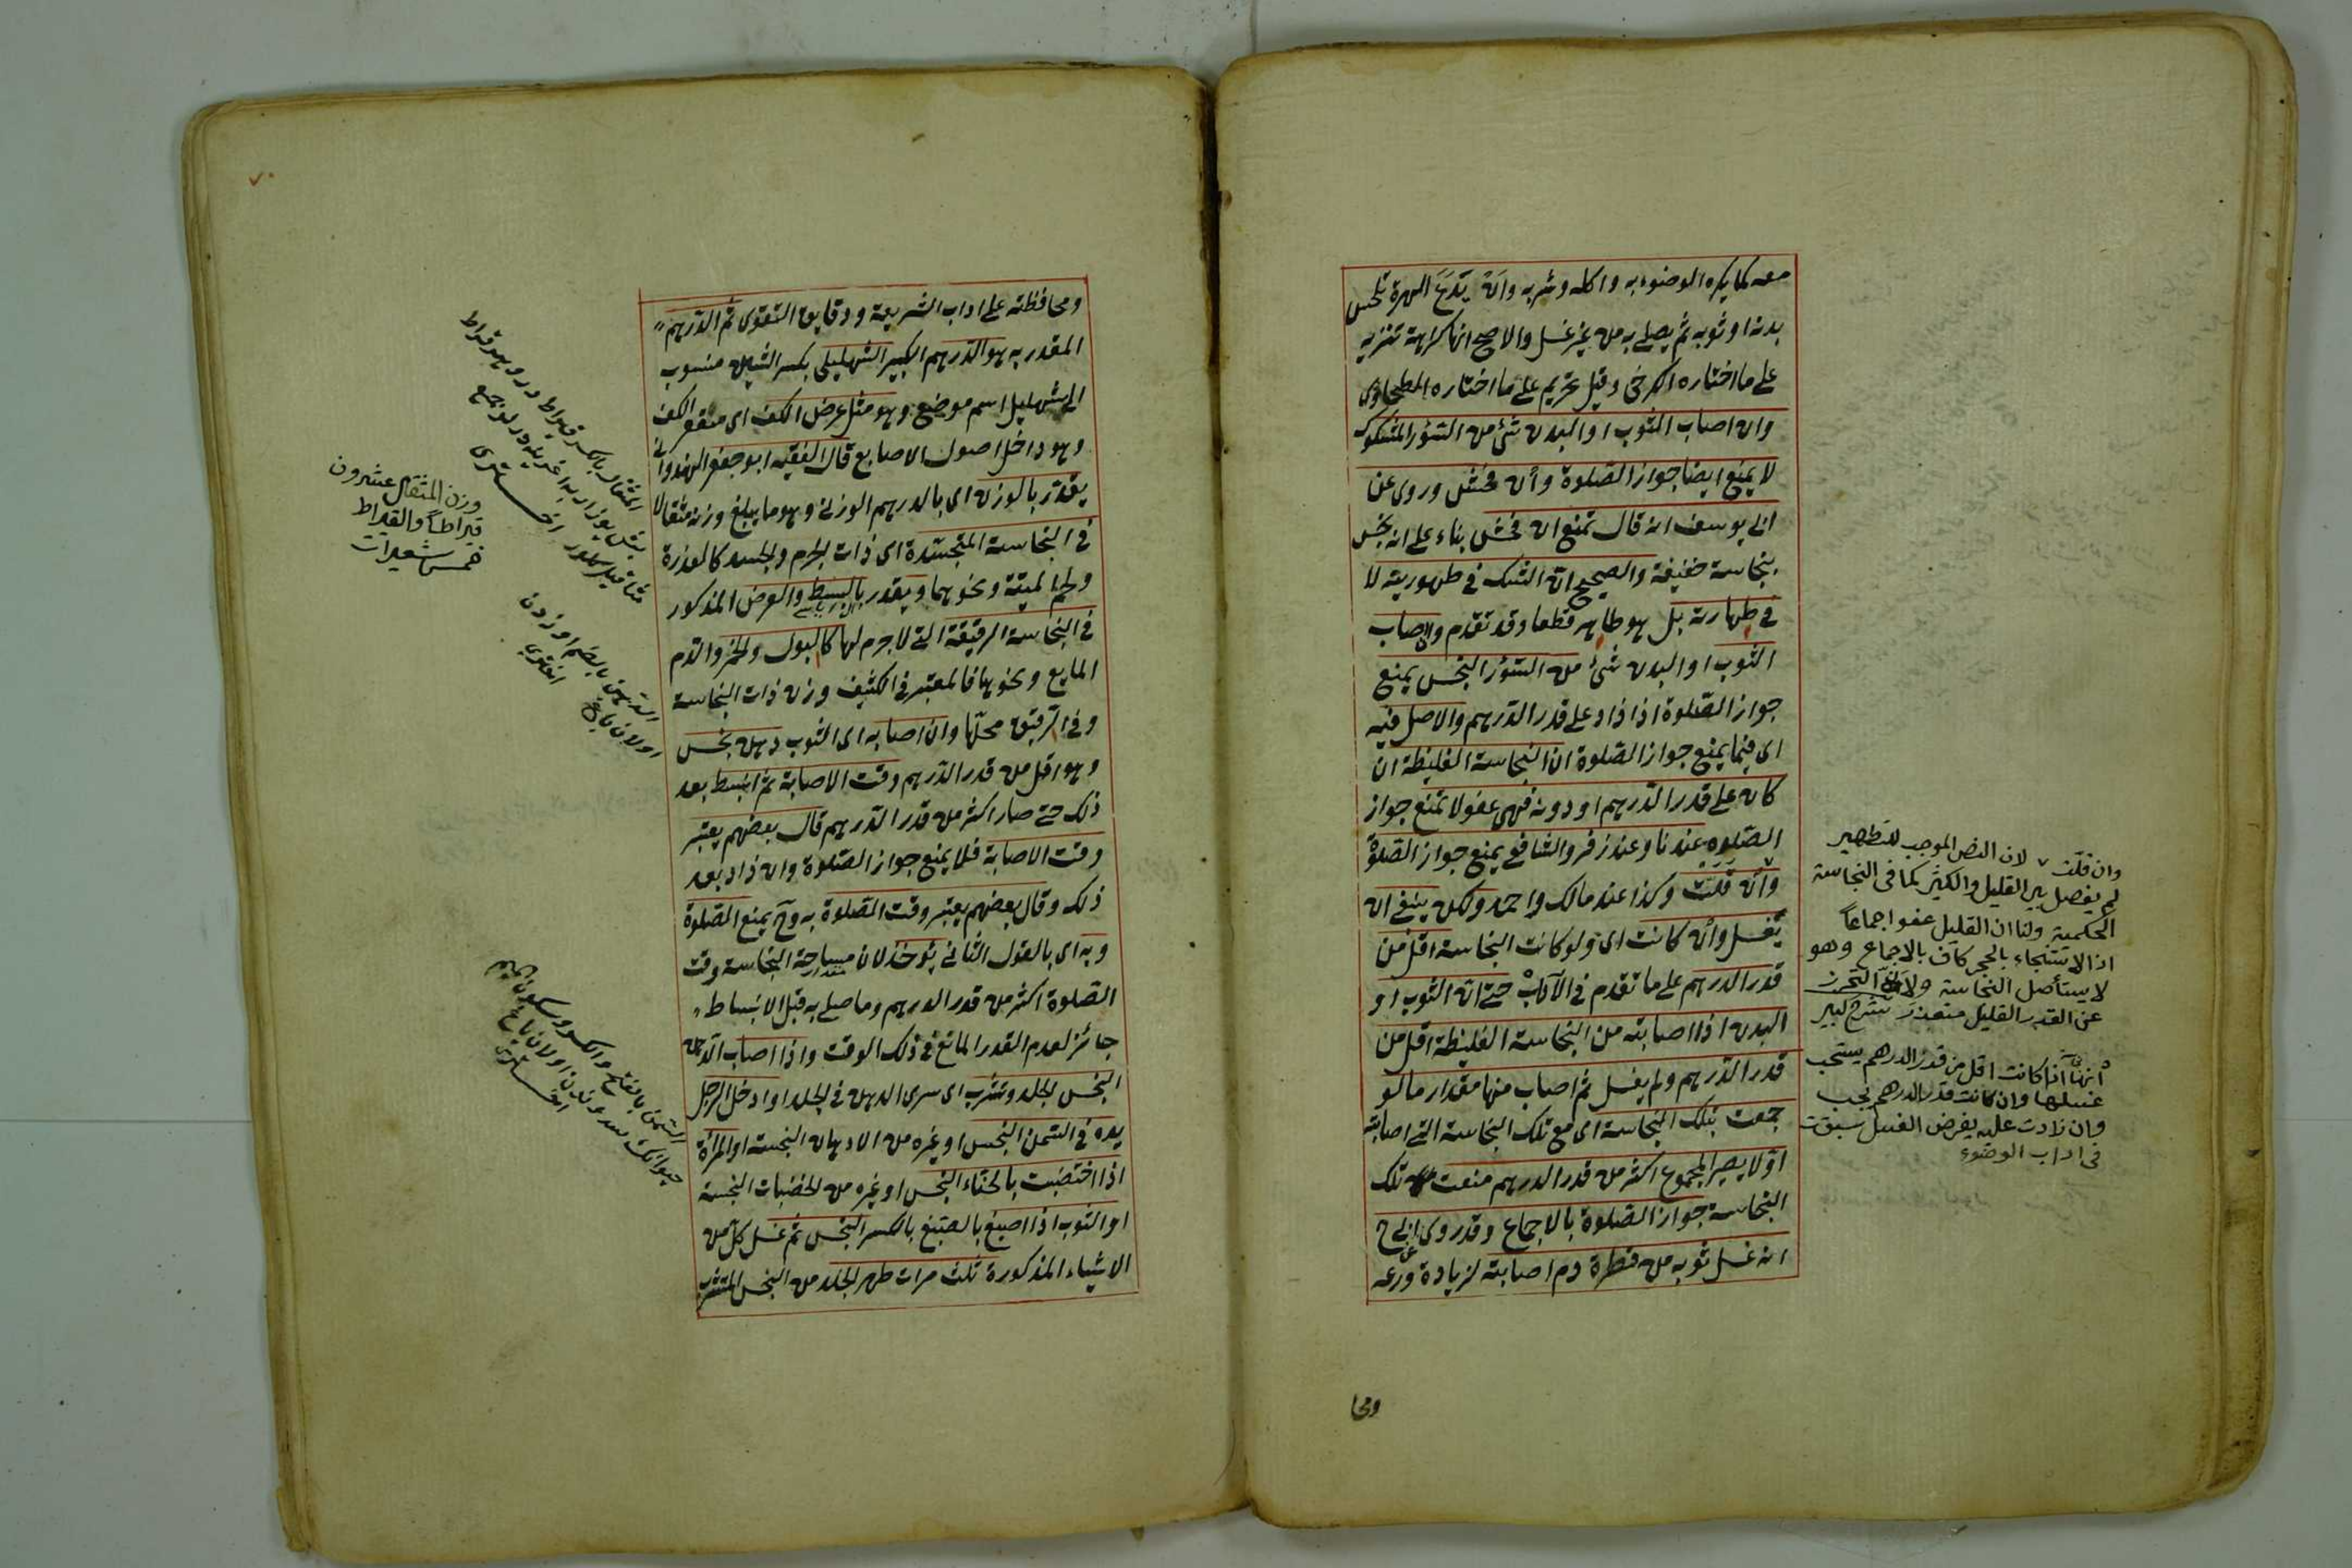 معه كما يكره الوضوء به واكله وشربه وان يدع الهرة تلحس
بدنه او ثوبه ثم يصلى به من غير غسل والاصح انها كراهة تنزيه
على ما اختاره الكرخى وقيل تحريم على ما اختاره الطحاوى
وان اصاب الثوب او البدن شئ من السؤر المشكوك
لا يمنع ايضا جواز الصلوة وان فحش وروى عن
ابى يوسف انه قال تمنع ان فحش بناء على انه نجس
بنجاسة خفيفة والصحيح ان الشك فى طهوريته لا
فى طهارته بل هو طاهر قطعا وقد تقدم وان اصاب
الثوب او البدن شئ من السؤر النجس يمنع
جواز الصلوة اذا زاد على قدر الدرهم والاصل فيه
اى فيما يمنع جواز الصلوة ان النجاسة الغليظة ان
كان على قدر الدرهم او دونه فهى عفو لا تمنع جواز
الصلوة عندنا وعند زفر والشافعى يمنع جواز الصلوة
وان قلت وكذا عند مالك واحمد ولكن ينبغى ان
تغسل وان كانت اى ولو كانت النجاسة اقل من
قدر الدرهم على ما تقدم فى الآداب حتى ان الثوب او
البدن اذا اصابته من النجاسة الغليظة اقل من
قدر الدرهم ولم يغسل ثم اصاب منها مقدار ما لو
جمعت بتلك النجاسة اى مع تلك النجاسة التى اصابته
اولا يصير المجموع اكثر من قدر الدرهم منعت تلك
النجاسة جواز الصلوة بالاجماع وقد روى عن ابى ح
انه غسل ثوبه من قطرة دم اصابته لزيادة ورعه
ومحا
وان قلت لان النص الموجب للتطهير
لم يفصل بين القليل والكثير كما فى النجاسة
الحكمية ولنا ان القليل عفو اجماعاً
اذ الاستنجاء بالحجر كاف بالاجماع وهو
لا يستأصل النجاسة ولان التحرز
عن القدر القليل متعذر شرح كبير
انها اذا كانت اقل من قدر الدرهم يستحب
غسلها وان كانت قدر الدرهم يجب
وان زادت عليه يفرض الغسل سبقت
فى اداب الوضوء
٧٠
ومحافظته على اداب الشريعة ودقايق التقوى ثم الدرهم
المقدر به هو الدرهم الكبير الشهليلى بكسر الشين منسوب
الى شهليل اسم موضع وهو مثل عرض الكف اى مقعر الكف
وهو داخل اصول الاصابع قال الفقيه ابو جعفر الهندوانى
يقدر بالوزن اى بالدرهم الوزنى وهو ما يبلغ وزنه مثقالا
فى النجاسة المتجسدة اى ذات الجرم والجسد كالعذرة
ولحم الميتة ونحوهما ويقدر بالبسط والعرض المذكور
فى النجاسة الرقيقة التى لا جرم لها كالبول والخمر والدم
المايع ونحوها فالمعتبر فى الكثيف وزن ذات النجاسة
وفى الرقيق محلها وان اصابه اى الثوب دهن نجس
وهو اقل من قدر الدرهم وقت الاصابة ثم انبسط بعد
ذلك حتى صار اكثر من قدر الدرهم قال بعضهم يعتبر
وقت الاصابة فلا يمنع جواز الصلوة وان زاد بعد
ذلك وقال بعضهم يعتبر وقت الصلوة به وح يمنع الصلوة
وبه اى بالقول الثانى يؤخذ لان مساحة النجاسة وقت
الصلوة اكثر من قدر الدرهم وما صلى به قبل الانبساط
جائز لعدم القدر المانع فى ذلك الوقت واذا اصاب الدهن
النجس الجلد وتشرب اى سرى الدهن فى الجلد او ادخل الرجل
يده فى السمن النجس او غيره من الادهان النجسة او المرأة
اذا اختضبت بالحناء النجس او غيره من الخضبات النجسة
او الثوب اذا اصبغ بالصبغ بالكسر النجس ثم غسل كل من
الاشياء المذكورة ثلث مرات طهر الجلد من النجس المتشرب
وزن المثقال عشرون
قيراطاً والقيراط
خمس شعيرات
اخترى